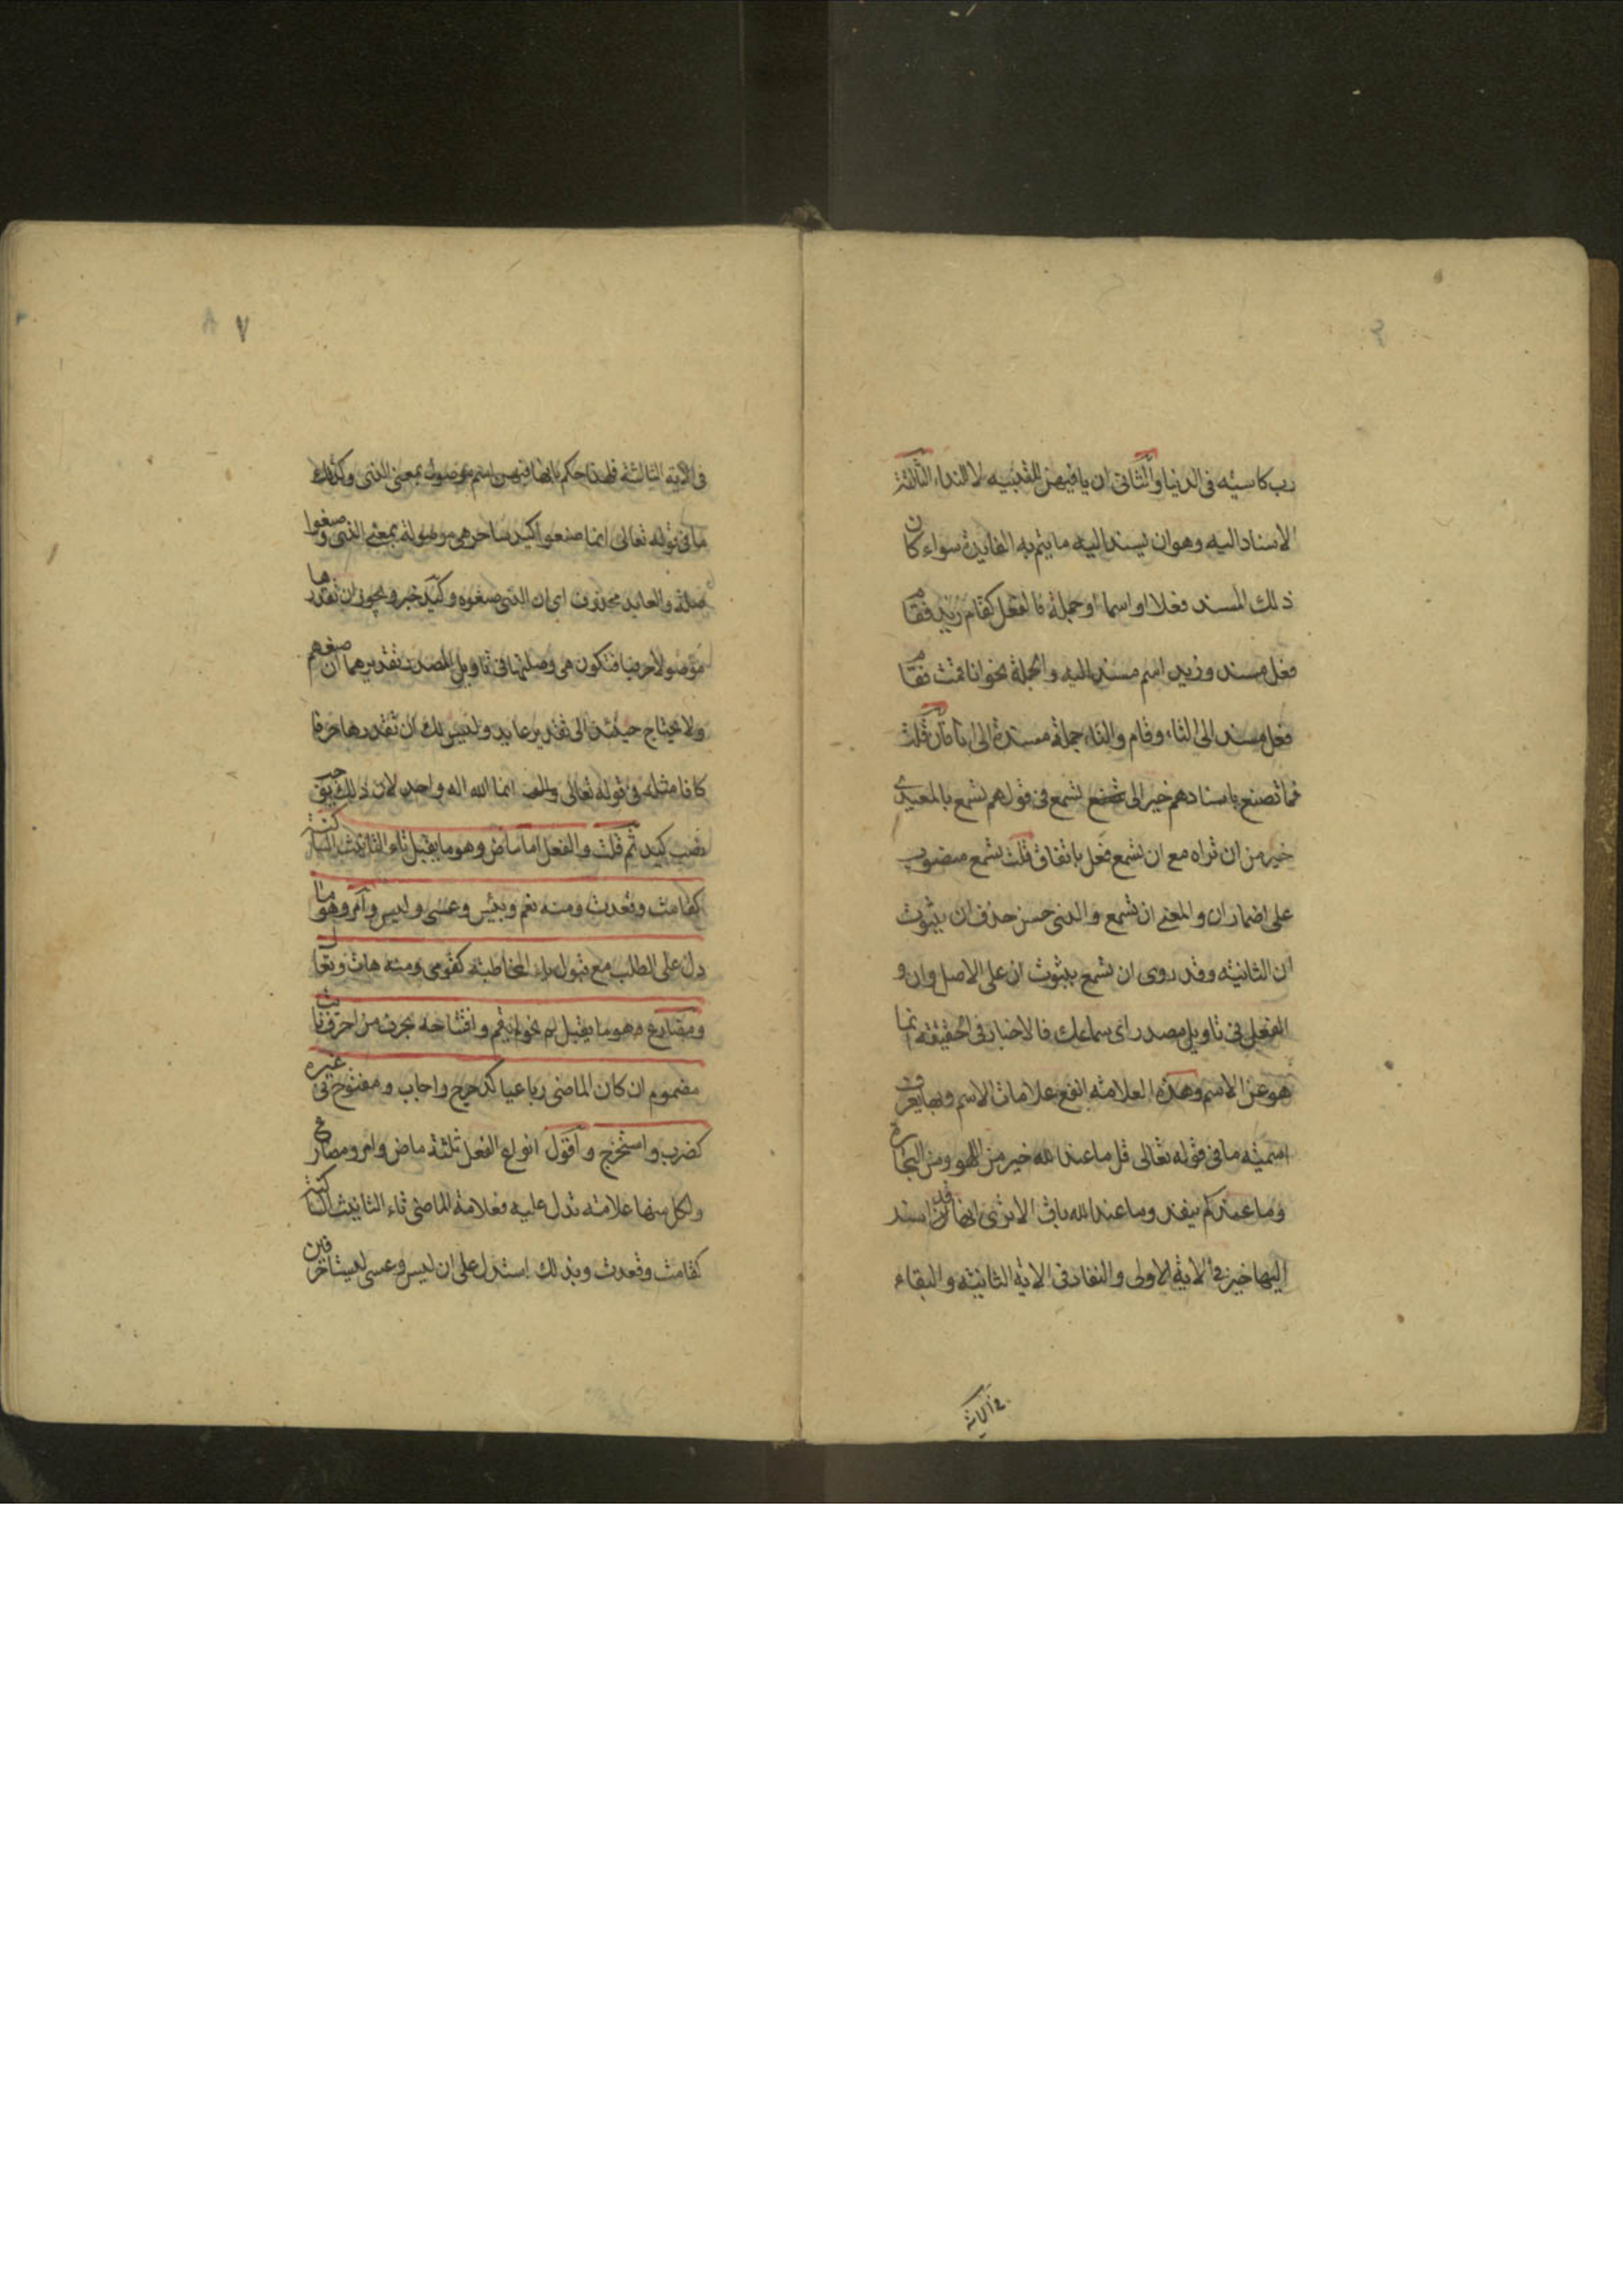 رب كاسيه فى الدنيا والثانى ان يا فيهن للتنبيه لا النداء الثالثة
الاسناد اليه وهو ان يسند اليه ما يتم به الفايدة سواء كان
ذلك المسند فعلا او اسما او جملة فالفعل كقام زيد فقام
فعل مسند وزيد اسم مسند اليه والجملة نحو انا قمت فقام
فعل مسند الى التاء وقام والتاء جملة مسندة الى انا فان قلت
فما تصنع باسنادهم خير الى تسمع فى قولهم تسمع بالمعيدى
خير من ان تراه مع ان تسمع فعل باتفاق قلت تسمع منصوب
على اضمار ان والمعنى ان تسمع والذى حسن حذف ان ثبوت
ان الثانيه وقد روى ان تسمع بثبوت ان على الاصل وان و
الفعل فى تاويل مصدر اى سماعك فالاخبار فى الحقيقة انما
هو عن الاسم وهذه العلامة انفع علامات الاسم وبها يعرف
اسمية ما فى قوله تعالى قل ما عند الله خير من اللهو ومن التجارة
وما عندكم ينفد وما عند الله باق الا ترى انها قد اسند
اليها خير فى الاية الاولى والنفاد فى الاية الثانية والبقاء
فى الاية
٧
فى الاية الثالثة فلهذا حكم بانها فيهن اسم موصول بمعنى الذى وكذلك
ما فى قوله تعالى انما صنعوا كيد ساحر هى موصولة بمعنى الذى وصنعوا
صلة والعايد محذوف اى ان الذى صنعوه وكيد خبر ويجوز ان تقدرها
موصولا حرفيا فتكون هى وصلتها فى تاويل المصدر تقديرهما ان صنعهم
ولا يحتاج حينئذ الى تقدير عايد وليس لك ان تقدرها حرفا
كافا مثله فى قوله تعالى انما الله اله واحد لان ذلك يوجب
نصب كيد ثم قلت والفعل اما ماض وهو ما يقبل تاء التانيث الساكنة
كقامت وقعدت ومنه نعم وبئس وعسى وليس وامر وهو ما
دل على الطلب مع قبول ياء المخاطبة كقومى ومنه هات وتعال
ومضارع وهو ما يقبل لم نحو لم يقم وافتتاحه بحرف من احرف نايت
مضموم ان كان الماضى رباعيا كدحرج واجاب ومفتوح فى غيره
كضرب واستخرج واقول انواع الفعل ثلثة ماض وامر ومضارع
ولكل منها علامة تدل عليه فعلامة الماضى تاء التانيث الساكنة
كقامت وقعدت وبذلك استدل على ان ليس وعسى ليستا حرفين